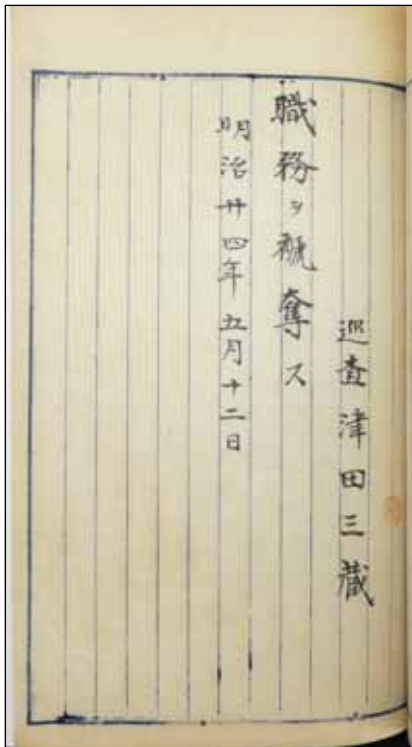 巡査津田三蔵
職務ヲ褫奪ス
明治廿四年五月十二日